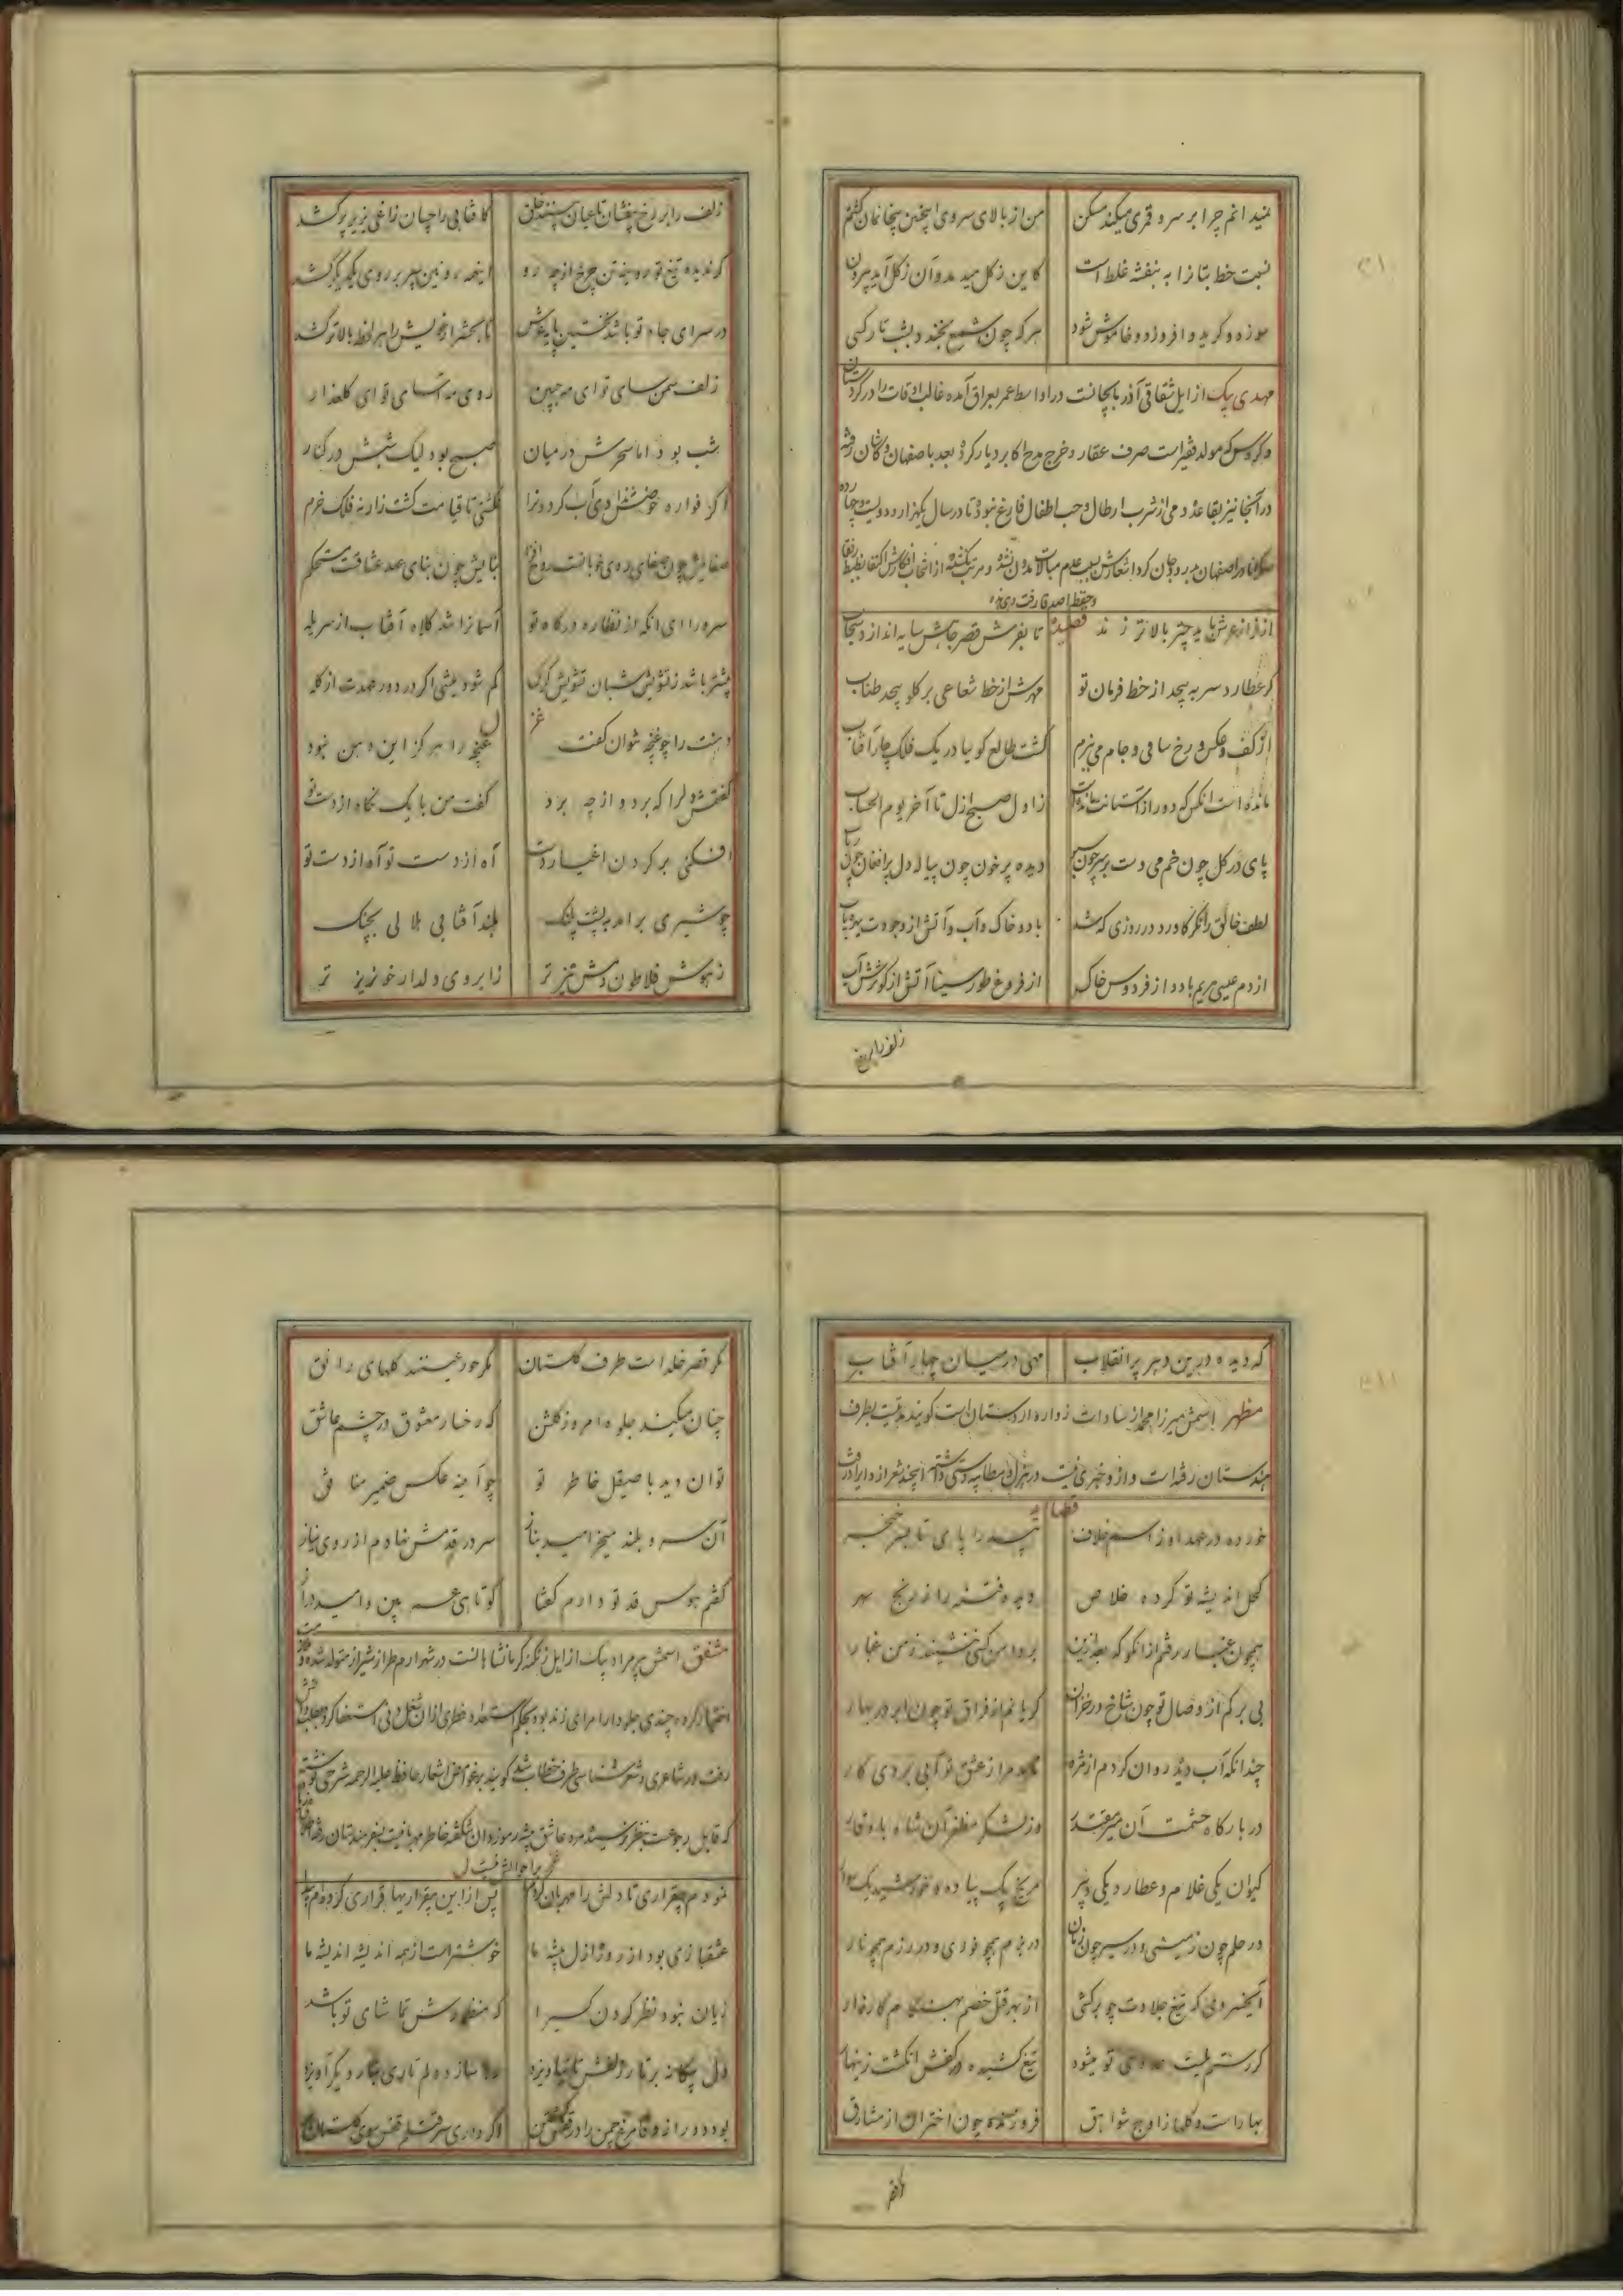 نمیدانم چرا بر سرو قمری میکند مسکن من از بالای سروی اینچنین بیخانمان گشتم
نسبت خط بتانرا به بنفشه غلط است کاین ز گل میدمد و آن ز گل آید بیرون
سوزد و گرید و افروزد و خاموش شود هر که چون شمع بخندد بشب تار کسی
مهدی بیک از ایل شقاقی آذربایجانست در اواسط عمر بعراق آمده غالب اوقات را در کردستان
و گروس که مولد فقیر است صرف عقار و خرج مدح اکابر دیار کرد بعد باصفهان و کاشان رفته
در آنجا نیز بقاعده دمی از شرب ارطال و حب اطفال فارغ نبود تا در سال یکهزار و دویست و چهارده
در اصفهان بدرود جان کرد اشعارش بسبب عدم مبالات مدون نشده و مرتب نگشته از انتخاب افکارش اکتفا
قصیده
از فراز عرش باید چتر بالاتر زند تا بفرش قصر جاهش سایه اندازد سحاب
گر عطارد سر به پیچد از خط فرمان تو مهرش از خط شعاعی بر گلو پیچد طناب
از کف و عکس رخ ساقی و جام می بزم گشت طالع گوئیا در یک فلک چار آفتاب
مانده است آنکس که دور از آستانت مانده است ز اول صبح ازل تا آخر یوم الحساب
پای در گل چون خم می دست بر سر چون سبو دیده پر خون چون پیاله دل پر افغان چون رباب
لطف خالق را نگر کاورد در روزی که شد باد و خاک و آب و آتش از وجودت بهره یاب
از دم عیسی مریم باد و از فردوس خاک از فروغ طور سینا آتش از کوثرش آب
زلف را بر رخ
زلف را بر رخ بیفشان تا عیان بینند خلق کافتابی را چسان زاغی بزیر پر کشد
گر ندیده تیغ تو روئینه تن چرخ از چه رو اینهمه روئین سپر بر روی یکدیگر کشد
در سرای جاه تو باشد نخستین پایه عرش تا بحشر ار خویش را هر لحظه بالاتر کشد
زلف سمن سای تو ای مه جبین روی مه آسای تو ای گلعذار
شب بود اما سحرش در میان صبح بود لیک شبش در کنار
اگر فواره حوضش را دی آب کردون را گلستی تا قیامت کشت زار نه فلک خرم
صفایش چون صفای روی خوبانست روح افزا بنایش چون بنای عهد عشاقست مستحکم
سرورا ای آنکه از نظاره درگاه تو آسمانرا شد کلاه آفتاب از سر یله
بیشتر باشد ز تشویش شبان تشویش گرگ کم شود میشی اگر در دور عهدت از گله
دهنت را چو غنچه نتوان گفت غنچه را هرگز این دهن نبود
گفتمش دلرا که برد و از چه برد گفت من با یک نگاه از دست تو
افکنی بر گردن اغیار دست آه از دست تو آه از دست تو
چو شیری برآمد به پشت پلنگ بلند آفتابی هلالی بچنگ
ز هوش فلاطون دمش تیزتر ز ابروی دلدار خونریز تر
که دیده درین دهر پر انقلاب مهی در میان چهار آفتاب
مظهر اسمش میرزا محمد از سادات زواره اردستان است گویند مدتیست بطرف
هندستان رفته است و از و خبری نیست در هزل و مطایبه دستی داشته این چند شعر از و ایراد رفت
قصائد
خورده در عهد او ز اسم خلاف بید را پای تا بسر خنجر
کحل اندیشه تو کرده خلاص دیده فتنه را ز رنج سهر
همچون غبار رفتم از آن کو که بعد ازین بر دامن کسی ننشیند ز من غبار
بی برگم از وصال تو چون شاخ در خزان گریانم از فراق تو چون ابر در بهار
چندانکه آب دیده روان کردم از مژه نامد مرا ز عشق تو آبی بروی کار
در بارگاه حشمت آن میر مقتدر وز لشکر مظفر آن شاه با وقار
کیوان یکی غلام و عطارد یکی دبیر مریخ یک پیاده و خورشید یک سوار
در حلم چون زمینی و در سیر چون زمان در بزم همچو نوری و در رزم همچو نار
آنخسروی که تیغ جلادت چو برکشی از بهر قتل خصم بهنگام کارزار
گر رستمیست عدوی تو میشود تیغ کشیده در کفش انگشت زینهار
بهار است و گلها ز اوج شواهق فروزنده چون اختران از مشارق
مگر قصر خلد است طرف گلستان مگر حور عینند گلهای رائق
چنان میکند جلوه امروز گلشن که رخسار معشوق در چشم عاشق
توان دید با صیقل خاطر تو چو آئینه عکس ضمیر منافق
آن سرو بلند میخرامید بناز سر در قدمش نهادم از روی نیاز
گفتم هوس قد تو دارم گفتا کوتاهی عمر بین و امید دراز
مشفق اسمش میر مراد بیک از ایل زنگنه کرمانشاهانست در شهر ارم طراز شیراز متولد شده
اختیار کرده چندی جلودار امرای زند بوده بحکم استعداد فطری از آن شغل دنی استعفا کرد
رفت در شاعری و شعر شناسی طرف خطاب شد گویند بر غوامض اشعار حافظ علیه الرحمه شرحی نوشته
که قابل رجوعست بنظر نرسیده مرد عاشق پیشه رموزدان شکفته خاطر مهربانیست بسفر هندستان رفته
نمودم بیقراری تا دلش را مهربان کردم پس از این بیقراریها قراری کرده‌ام پیدا
عشقبازی بود از روز ازل پیشه ما خوشتر است از همه اندیشه اندیشه ما
زیان نبود نظر کردن کسیرا که منظورش تماشای تو باشد
بود دور از وفا مرغ چمن را در قفس کشتن اگر داری سر قتلم قفس سوی گلستان